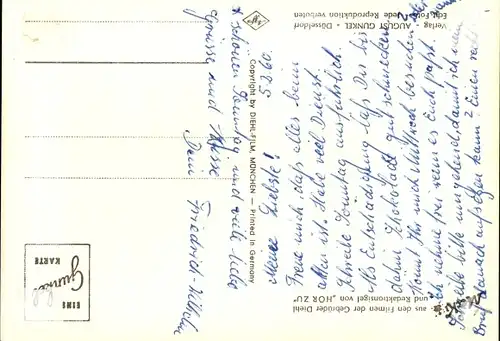 5.8.60.
Meine Liebste!
Freue mich, daß alles beim
Alten ist. Habe viel Dienst.
Schreibe Sonntag ausführlich.
Als Entschädigung laß Dir bis
dahin Schokolade gut schmecken.
Kommt Ihr mich Mittwoch besuchen?
Ich nehme frei wenn es Euch paßt.
bitte umgehend, damit ich
Brief danach aufgeben kann?
schönen Sonntag und viele liebe
Grüsse und Küsse
Dein
Friedrich Wilhelm
aus den Filmen der Gebrüder Diehl
und Redaktionsigel von „HÖR ZU“
Copyright by DIEHL-FILM, MÜNCHEN — Printed in Germany
Verlag - AUGUST GUNKEL - Düsseldorf
Jede Reproduktion verboten
EINE
Gunkel
KARTE